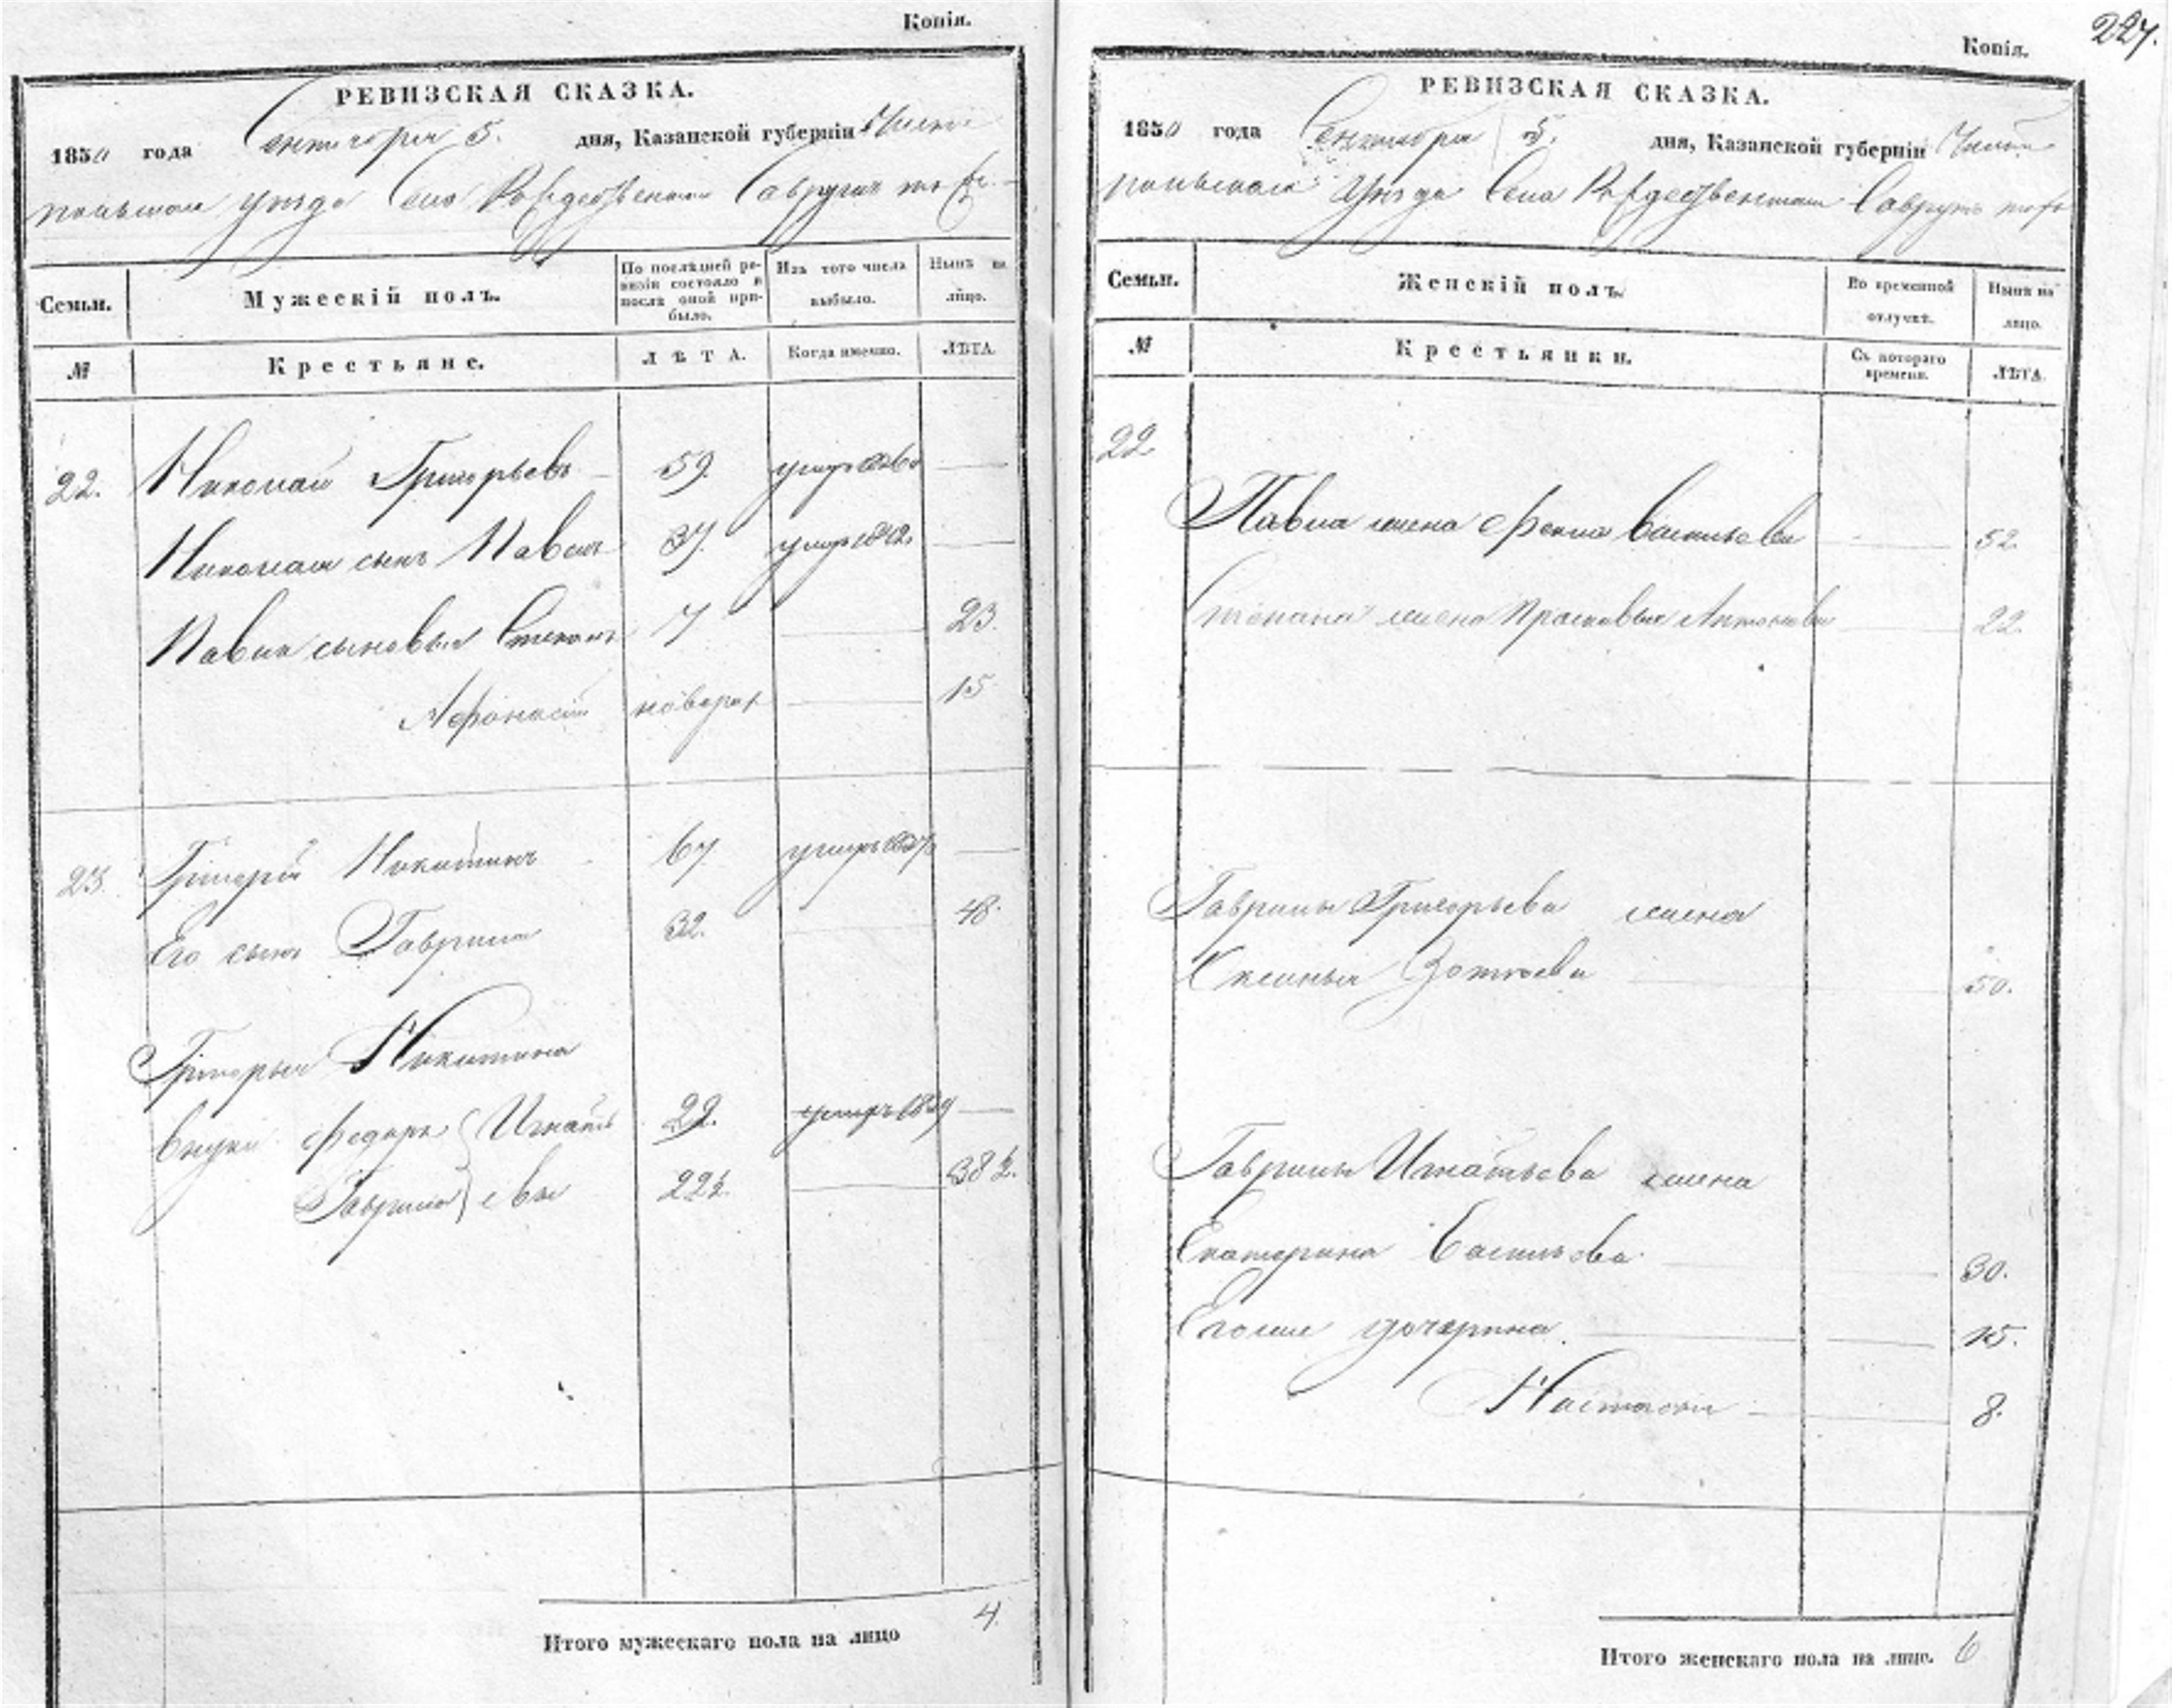 Копія.
РЕВИЗСКАЯ СКАЗКА.
1850 года Сентября 5. дня, Казанской губерніи Чисто
польскаго уѣзда Села Рождественскаго Савруши тожъ
Семьи. Мужескій полъ. По послѣдней ревизіи состояло и послѣ оной прибыло. Изъ того числа выбыло. Нынѣ на лицо.
№ Крестьяне. ЛѢТА. Когда именно. ЛѢТА.
22. Николай Григорьевъ 59. умеръ
Николая сынъ Павелъ 37. умеръ
Павла сыновья Степанъ 7 23.
Афонасій новорож 15
23. Григорій Никитинъ 67 умеръ
Его сынъ Гаврила 32. 48.
Григорья Никитина
внуки Федоръ Игнать 22. умеръ 1839
Гаврила евы 22½. 38½.
Итого мужескаго пола на лицо 4.
227.
Копія.
РЕВИЗСКАЯ СКАЗКА.
1850 года Сентября 5. дня, Казанской губерніи Чисто
польскаго Уѣзда Села Рождественскаго Савруши тожъ
Семьи. Женскій полъ. Во временной отлучкѣ. Нынѣ на лицо.
№ Крестьянки. Съ котораго времени. ЛѢТА.
22.
Павла жена Фекла Васильева 52.
Степана жена Прасковья Антонова 22.
Гаврилы Григорьева жена
Ксенья Зотеева 50.
Гаврилы Игнатьева жена
Екатерина Васильева 30.
Его дочери 15.
Настасья 8.
Итого женскаго пола на лицо. 6